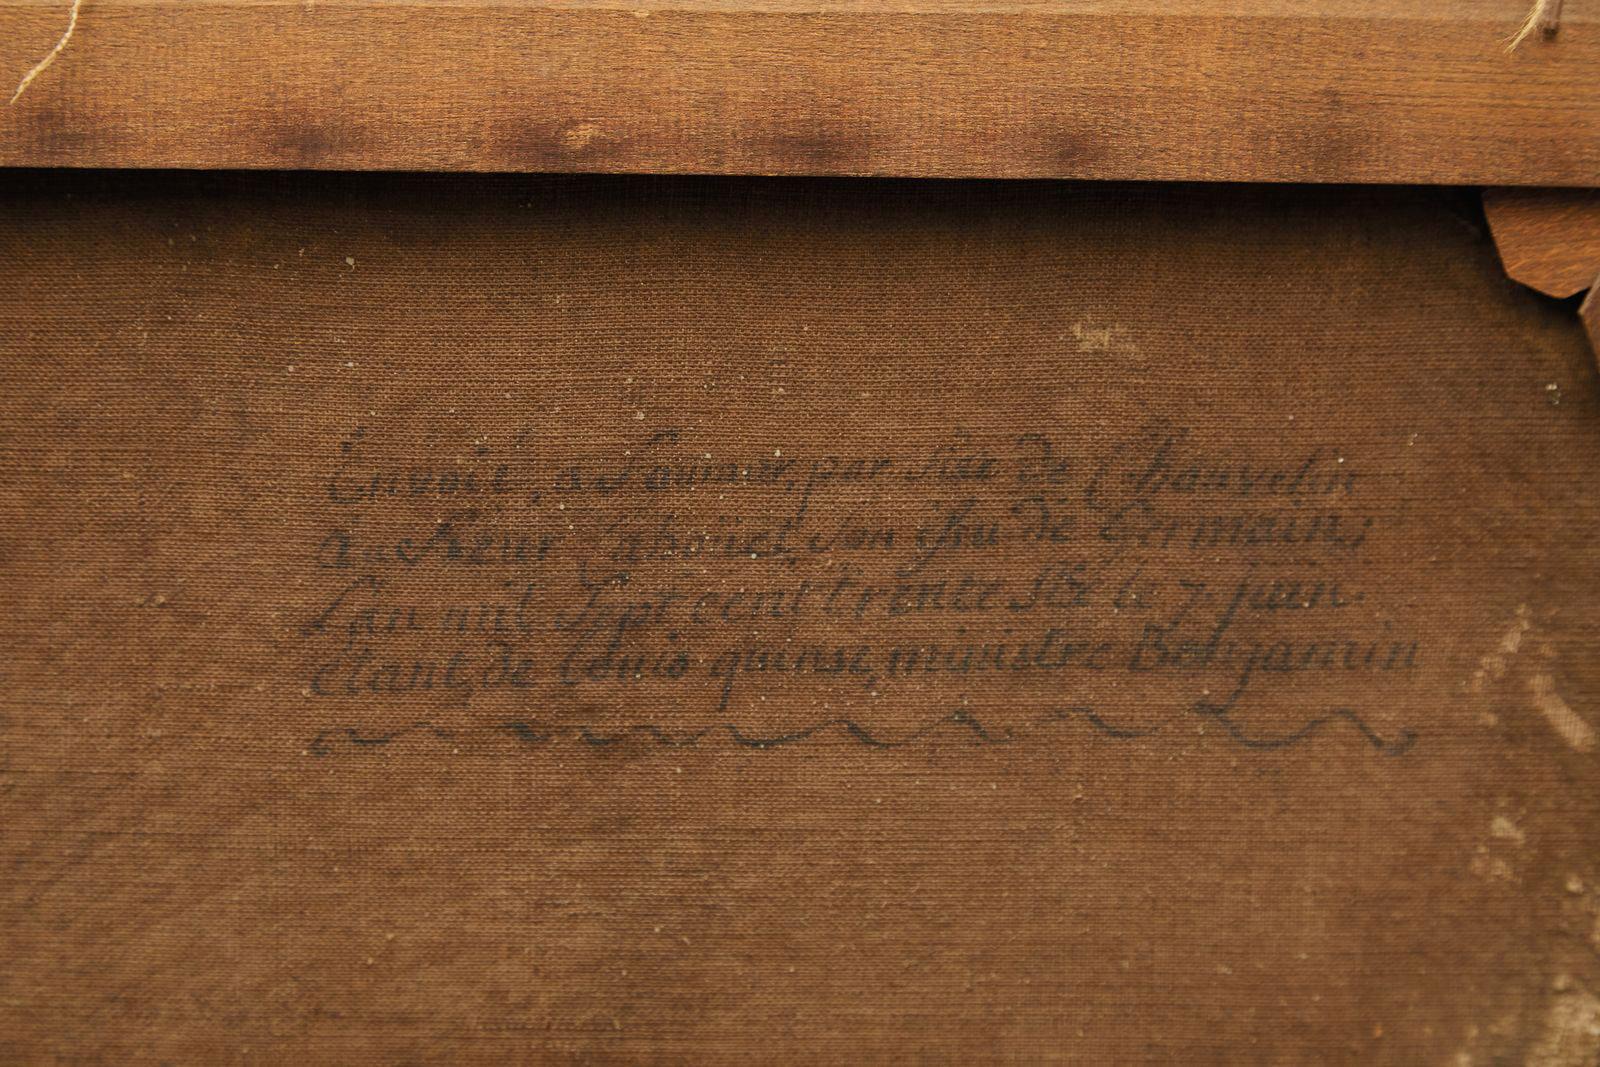 Envoié, a Saumur, par Mre de Chauvelin
Au Sieur son issu de Germain;
L'an mil Sept cent trente Six le 7. juin.
étant, de Louis quinse, ministre Benjamin